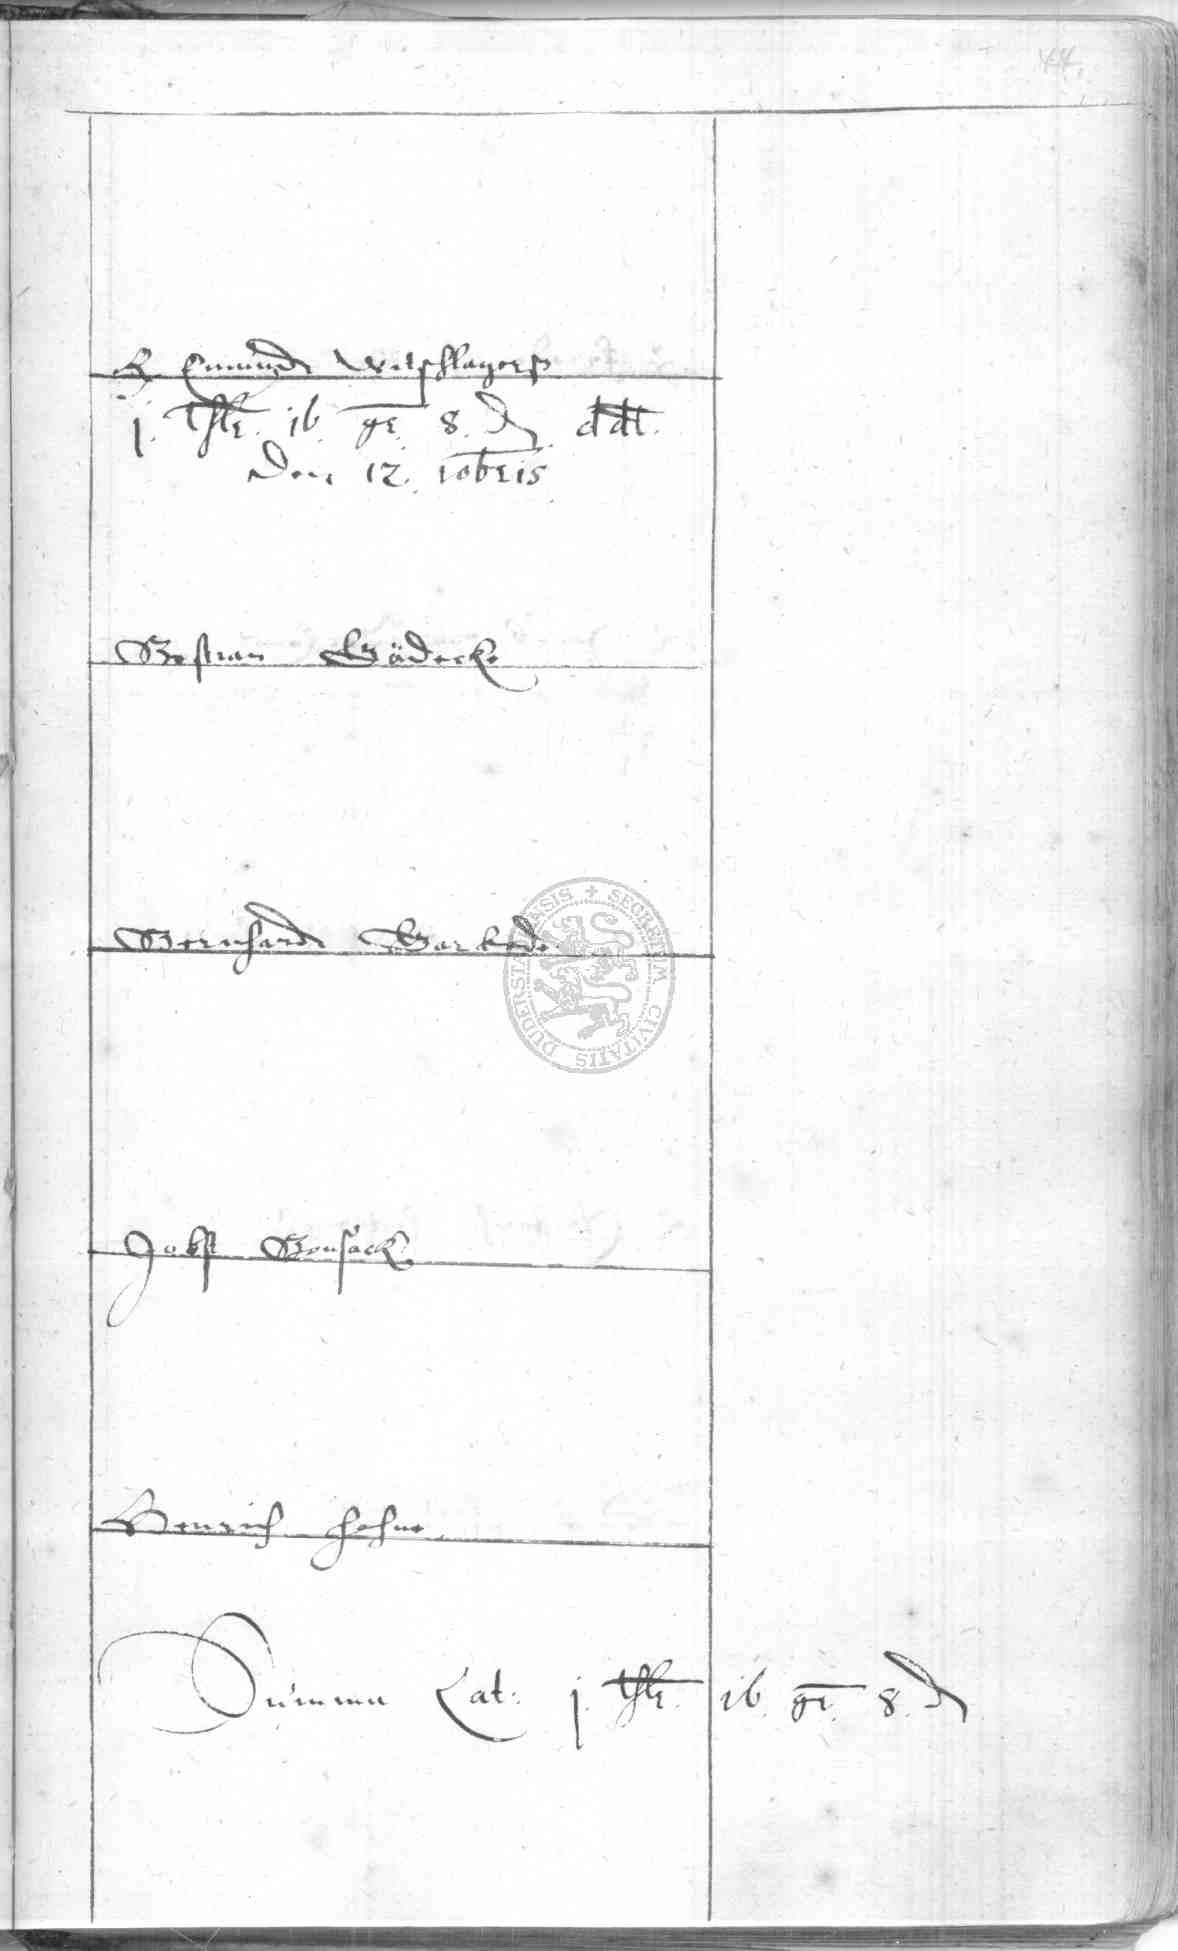 44.
H. Emundt Witschlagerß
j. thlr. 16. gr. 8. ₰. ddt.
den 12. 10bris
Bestian Gödecke
Bernhardt Barkede
Jobst Bonsack
Henrich Hohne
Summa Lat: j. thlr. 16. gr. 8. ₰
DUDERSTADENSIS + SECRETUM CIVITATIS